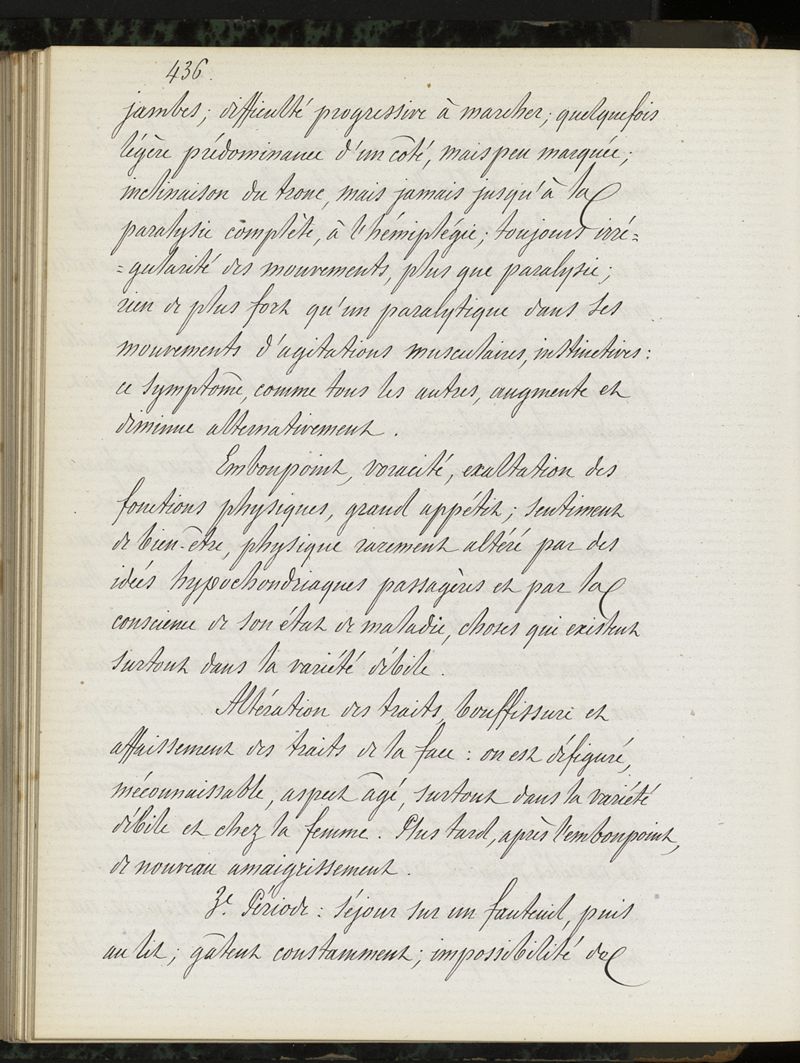 436.
jambes; difficulté progressive à marcher; quelquefois
légère prédominance d'un côté, mais peu marquée;
inclinaison du tronc, mais jamais jusqu'à la
paralysie complète, à l'hémiplégie; toujours irré=
=gularité des mouvements, plus que paralysie;
rien de plus fort qu'un paralytique dans ses
mouvements d'agitations musculaires, instinctives:
ce symptôme, comme tous les autres, augmente et
diminue alternativement.
Embonpoint, voracité, exaltation des
fonctions physiques, grand appétit; sentiment
de bien-être, physique rarement altéré par des
idées hypochondriaques passagères et par la
conscience de son état de maladie, choses qui existent
surtout dans la variété débile.
Altération des traits, bouffissure et
affaissement des traits de la face: on est défiguré,
méconnaissable, aspect âgé, surtout dans la variété
débile et chez la femme. Plus tard, après l'embonpoint,
de nouveau amaigrissement.
3e. Période: séjour sur un fauteuil, puis
au lit; gâtent constamment; impossibilité de